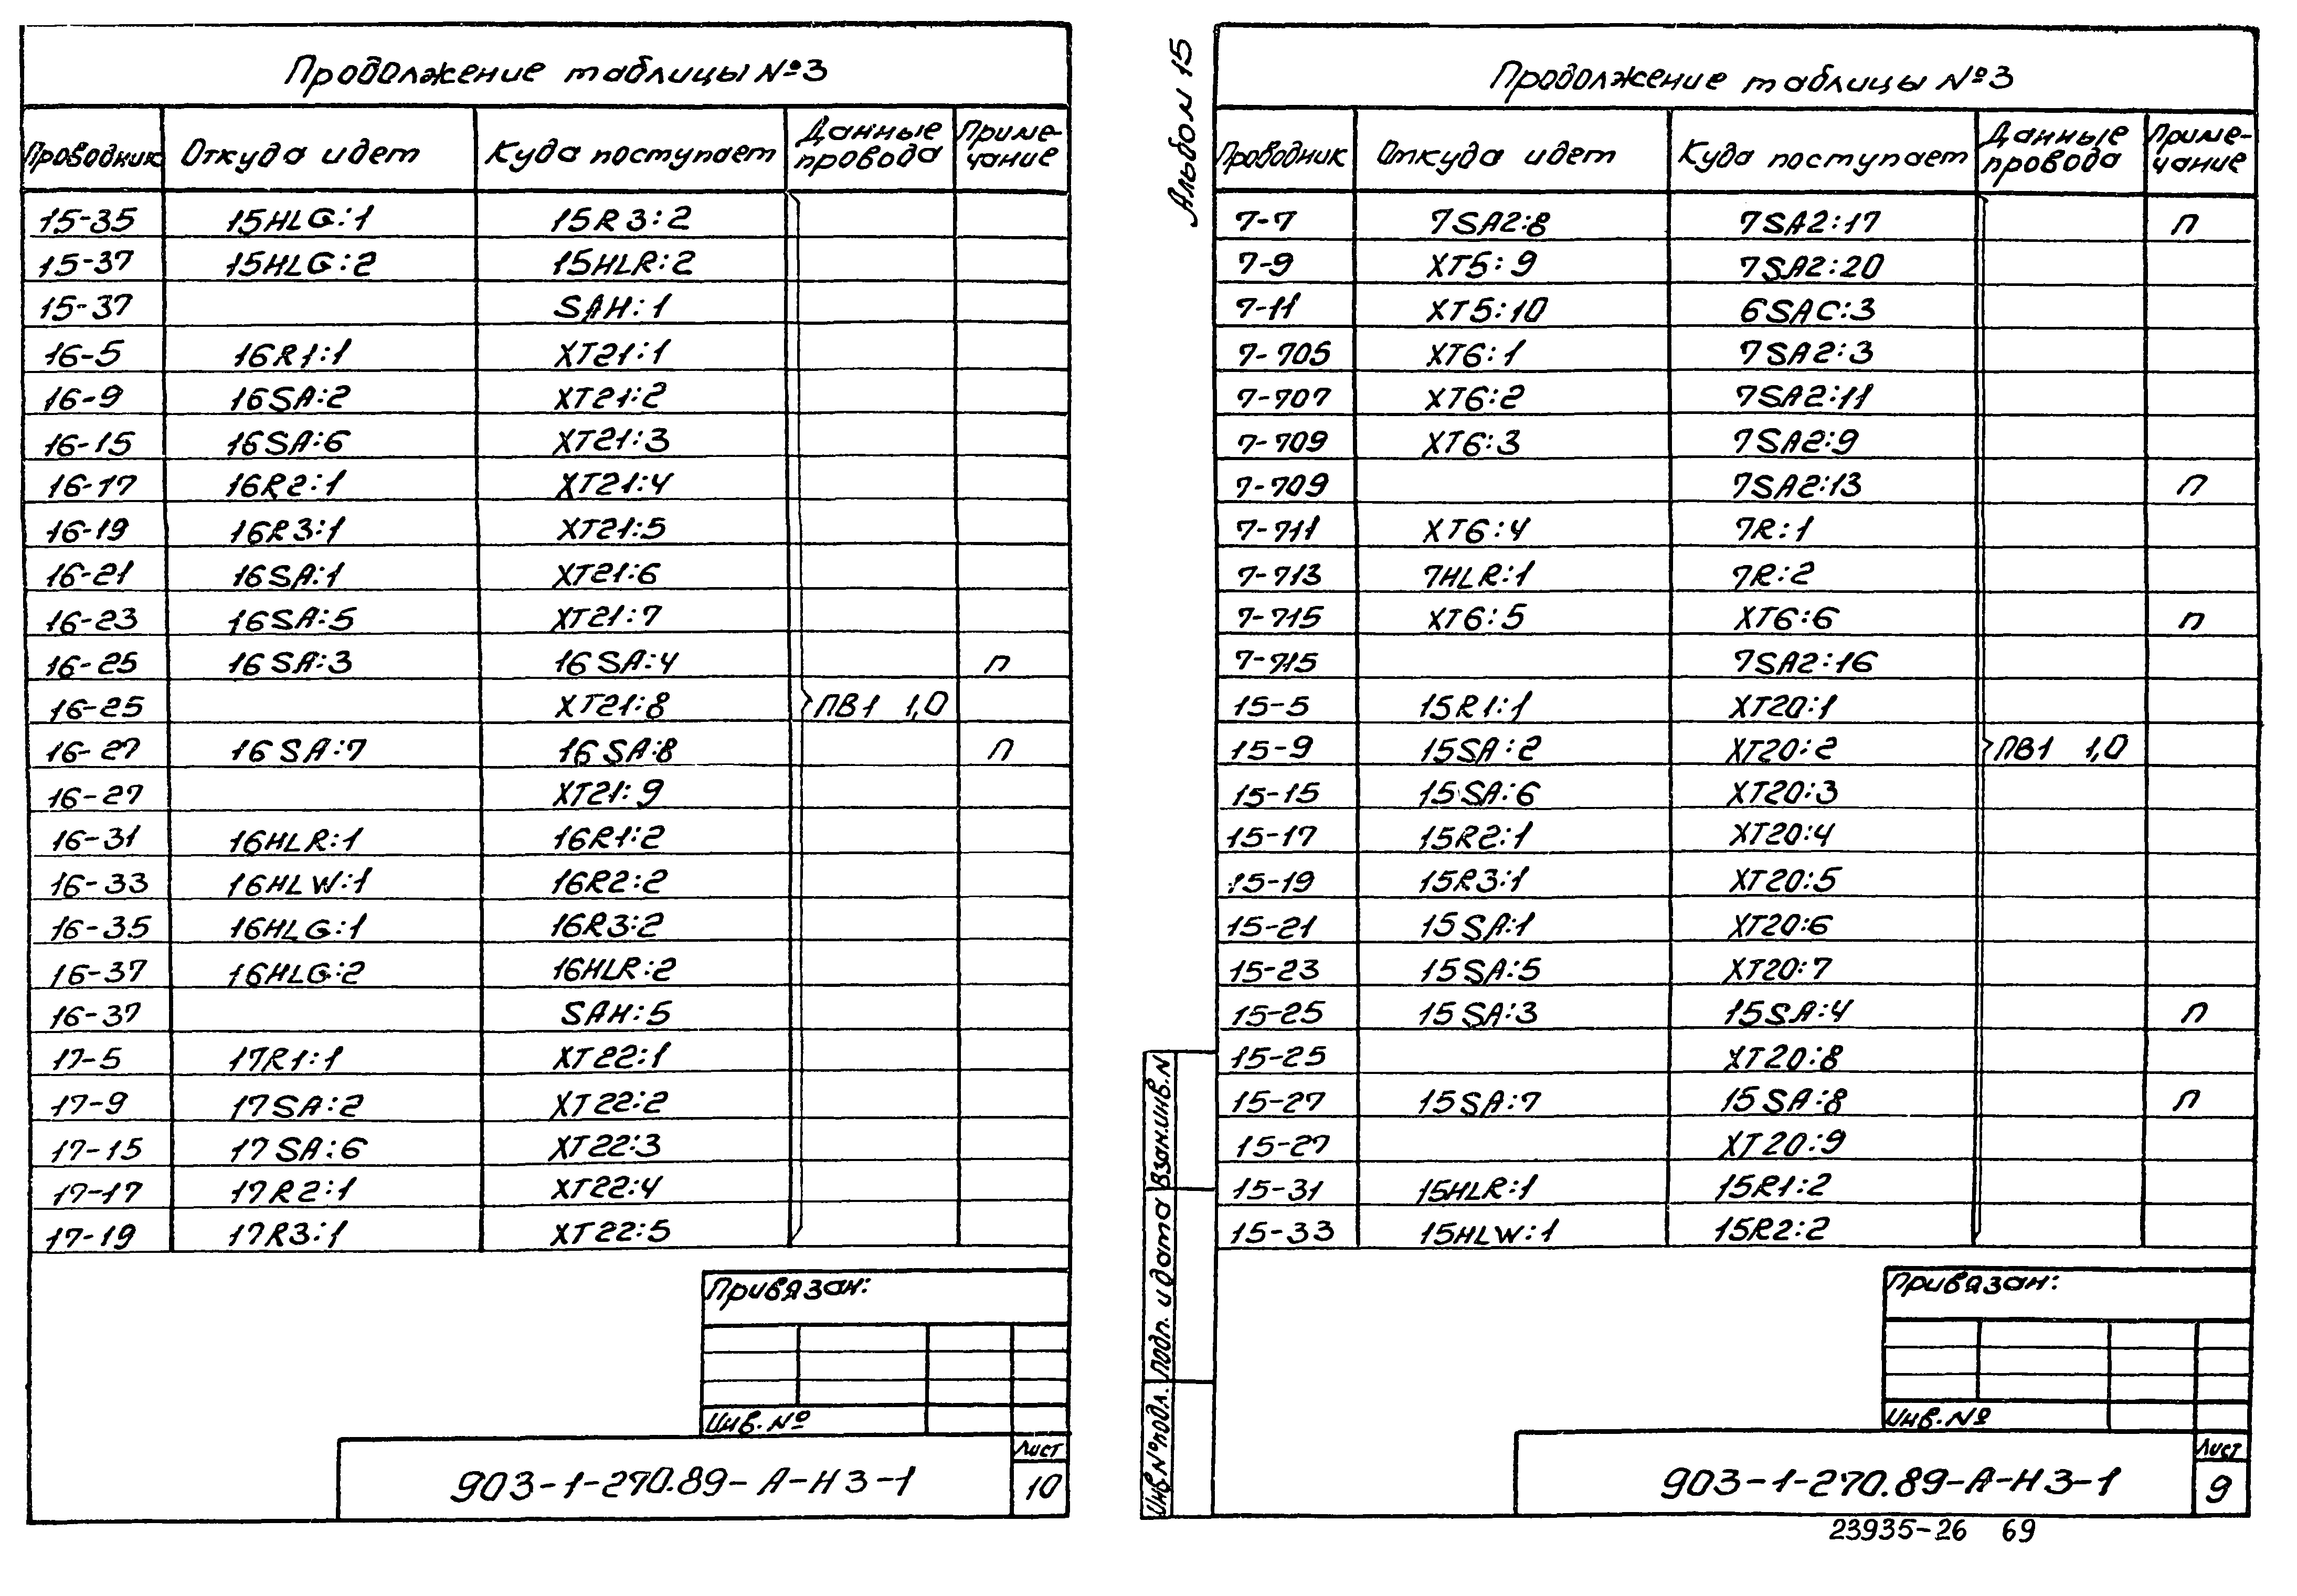 Продолжение таблицы №3
Проводник Откуда идет Куда поступает Данные провода Приме-чание
15-35 15HLG:1 15R3:2
15-37 15HLG:2 15HLR:2
15-37 SAH:1
16-5 16R1:1 XT21:1
16-9 16SA:2 XT21:2
16-15 16SA:6 XT21:3
16-17 16R2:1 XT21:4
16-19 16R3:1 XT21:5
16-21 16SA:1 XT21:6
16-23 16SA:5 XT21:7
16-25 16SA:3 16SA:4 п
16-25 XT21:8 ПВ1 1,0
16-27 16SA:7 16SA:8 п
16-27 XT21:9
16-31 16HLR:1 16R1:2
16-33 16HLW:1 16R2:2
16-35 16HLG:1 16R3:2
16-37 16HLG:2 16HLR:2
16-37 SAH:5
17-5 17R1:1 XT22:1
17-9 17SA:2 XT22:2
17-15 17SA:6 XT22:3
17-17 17R2:1 XT22:4
17-19 17R3:1 XT22:5
Привязан:
Инв.№
903-1-270.89-А-НЗ-1
Лист
10
Альбом 15
Продолжение таблицы №3
Проводник Откуда идет Куда поступает Данные провода Приме-чание
7-7 7SA2:8 7SA2:17 п
7-9 XT5:9 7SA2:20
7-11 XT5:10 6SAC:3
7-705 XT6:1 7SA2:3
7-707 XT6:2 7SA2:11
7-709 XT6:3 7SA2:9
7-709 7SA2:13 п
7-711 XT6:4 7R:1
7-713 7HLR:1 7R:2
7-715 XT6:5 XT6:6 п
7-715 7SA2:16
15-5 15R1:1 XT20:1
15-9 15SA:2 XT20:2 ПВ1 1,0
15-15 15SA:6 XT20:3
15-17 15R2:1 XT20:4
15-19 15R3:1 XT20:5
15-21 15SA:1 XT20:6
15-23 15SA:5 XT20:7
15-25 15SA:3 15SA:4 п
15-25 XT20:8
15-27 15SA:7 15SA:8 п
15-27 XT20:9
15-31 15HLR:1 15R1:2
15-33 15HLW:1 15R2:2
Взам.инв.N
Подп. и дата
Инв.№подл.
Привязан:
Инв.№
903-1-270.89-А-НЗ-1
Лист
9
23935-26 69